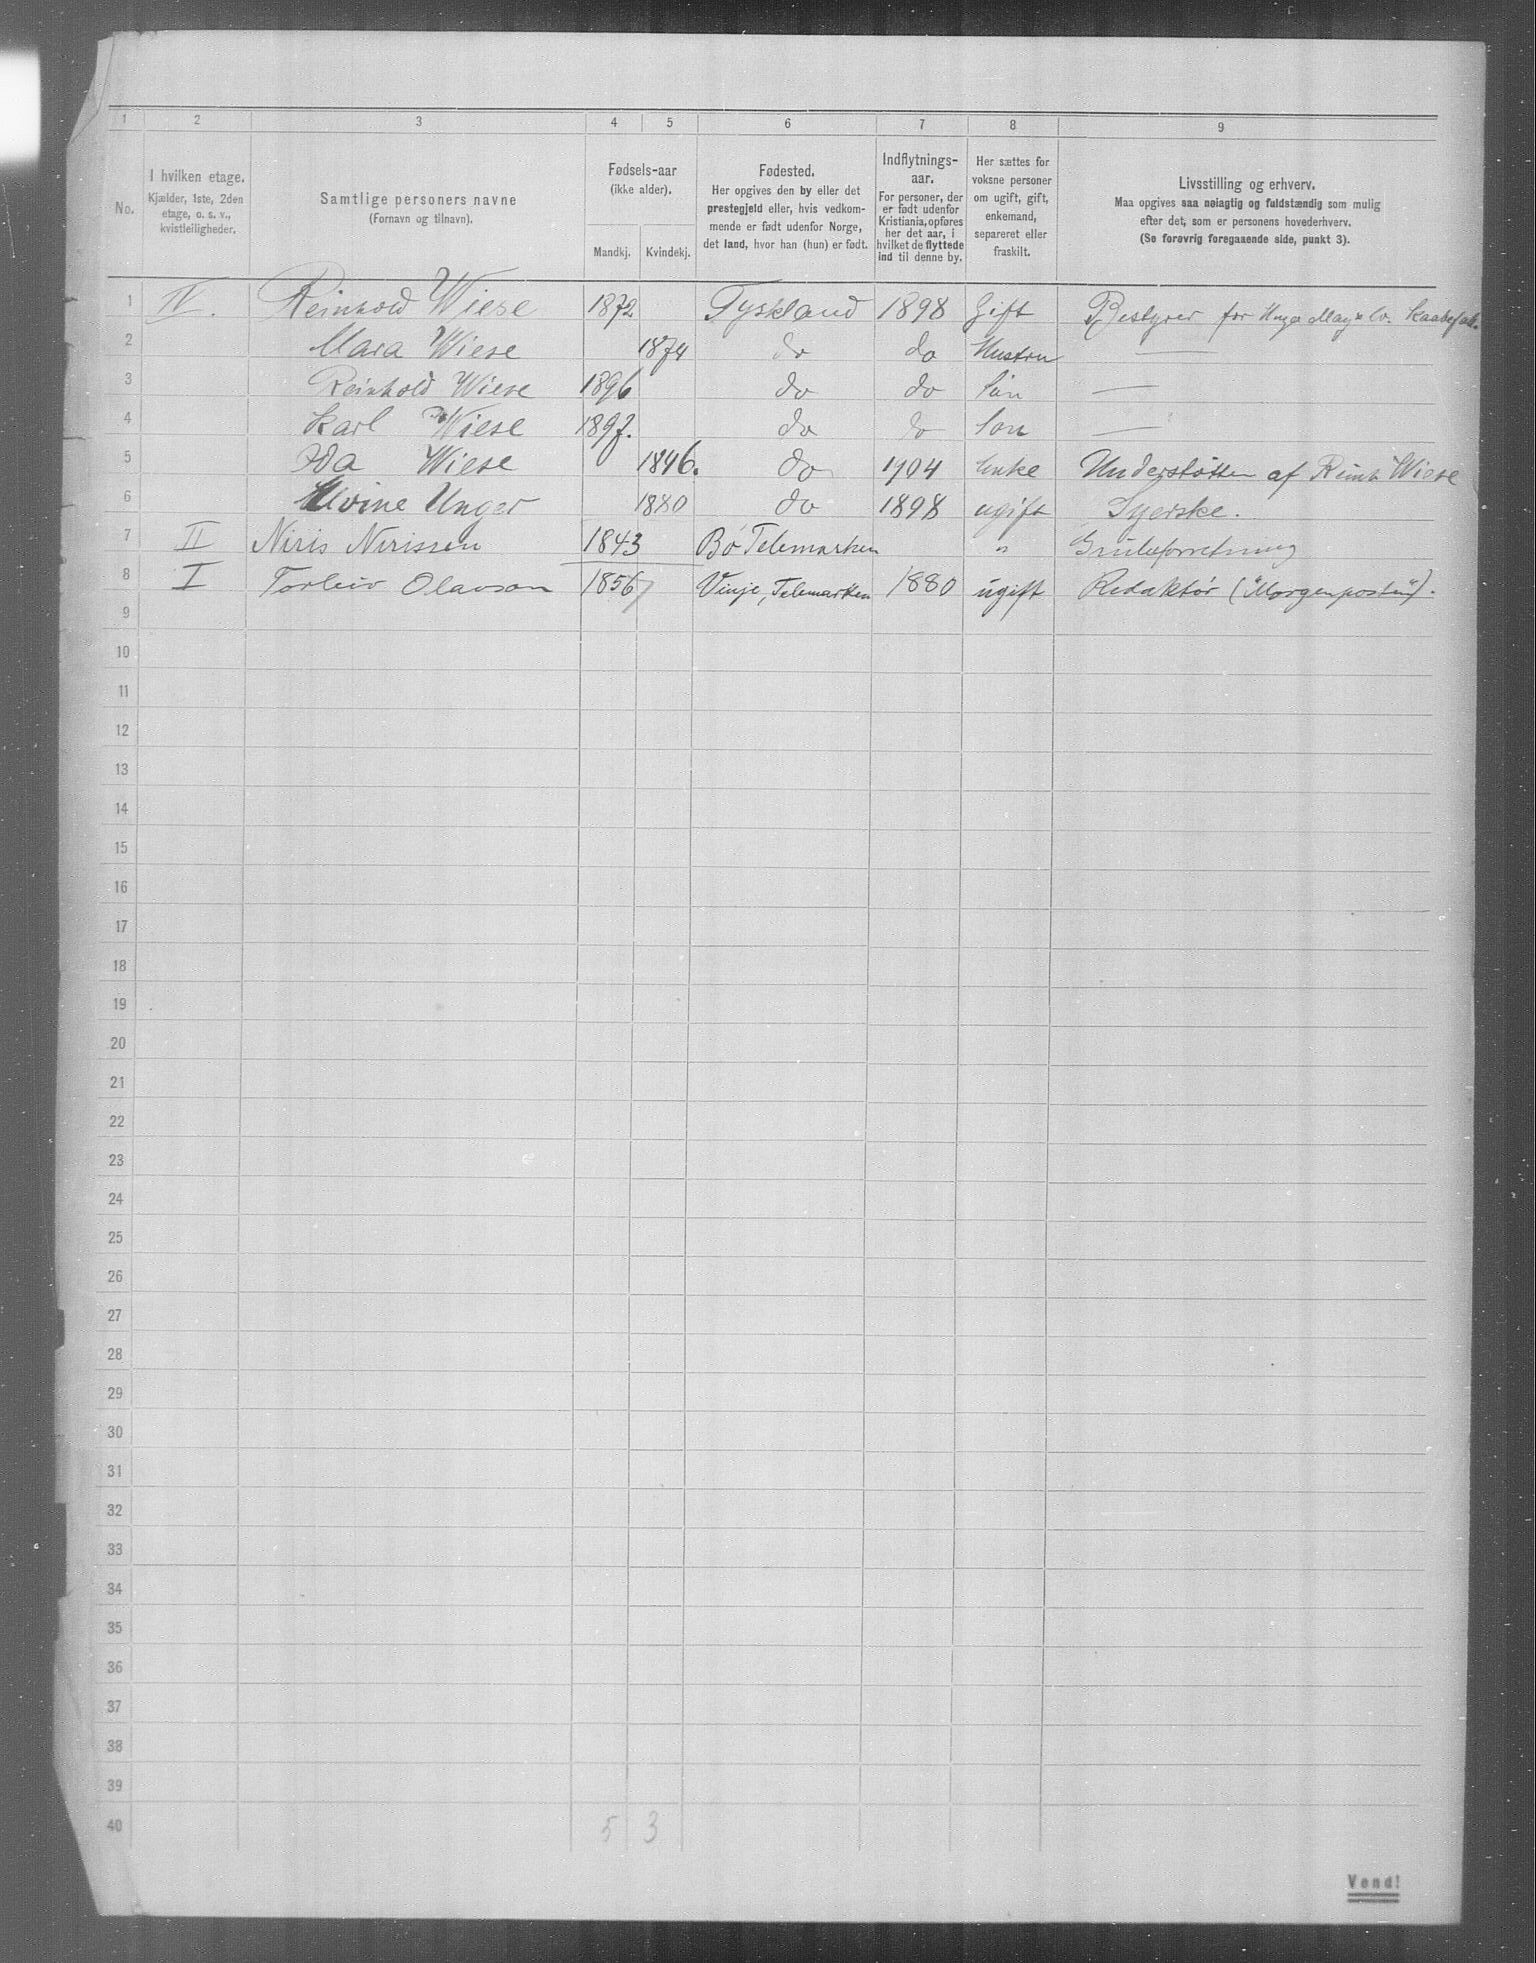 1 2 3 4 5 6 7 8 9
No.
I hvilken etage.
Kjælder, 1ste, 2den
etage, o. s. v.,
kvistleiligheder.
Samtlige personers navne
(Fornavn og tilnavn).
Fødsels-aar
(ikke alder).
Mandkj. Kvindekj.
Fødested.
Her opgives den by eller det
prestegjeld eller, hvis vedkom-
mende er født udenfor Norge,
det land, hvor han (hun) er født.
Indflytnings-
aar.
For personer, der
er født udenfor
Kristiania, opføres
her det aar, i
hvilket de flyttede
ind til denne by.
Her sættes for
voksne personer
om ugift, gift,
enkemand,
separeret eller
fraskilt.
Livsstilling og erhverv.
Maa opgives saa nøiagtig og fuldstændig som mulig
efter det, som er personens hovederhverv.
(Se forøvrig foregaaende side, punkt 3).
1 IV. Reinhold Wiese 1872 Tyskland 1898 Gift Bestyrer for May & Co.
2 Mara Wiese 1874 do do Hustru —
3 Reinhold Wiese 1896 do do Søn —
4 Karl Wiese 1897. do do Søn —
5 Ida Wiese 1846. do 1904 Enke Understøttes af Reinh Wiese
6 Unger 1880 do 1898 ugift Syerske.
7 II Niris Nirissen 1843 Bø Telemarken "
8 I Torleiv Olavson 1856 Vinje, Telemarken 1880 ugift Redaktør ("Morgenposten").
9
10
11
12
13
14
15
16
17
18
19
20
21
22
23
24
25
26
27
28
29
30
31
32
33
34
35
36
37
38
39
40 5 3
Vend!